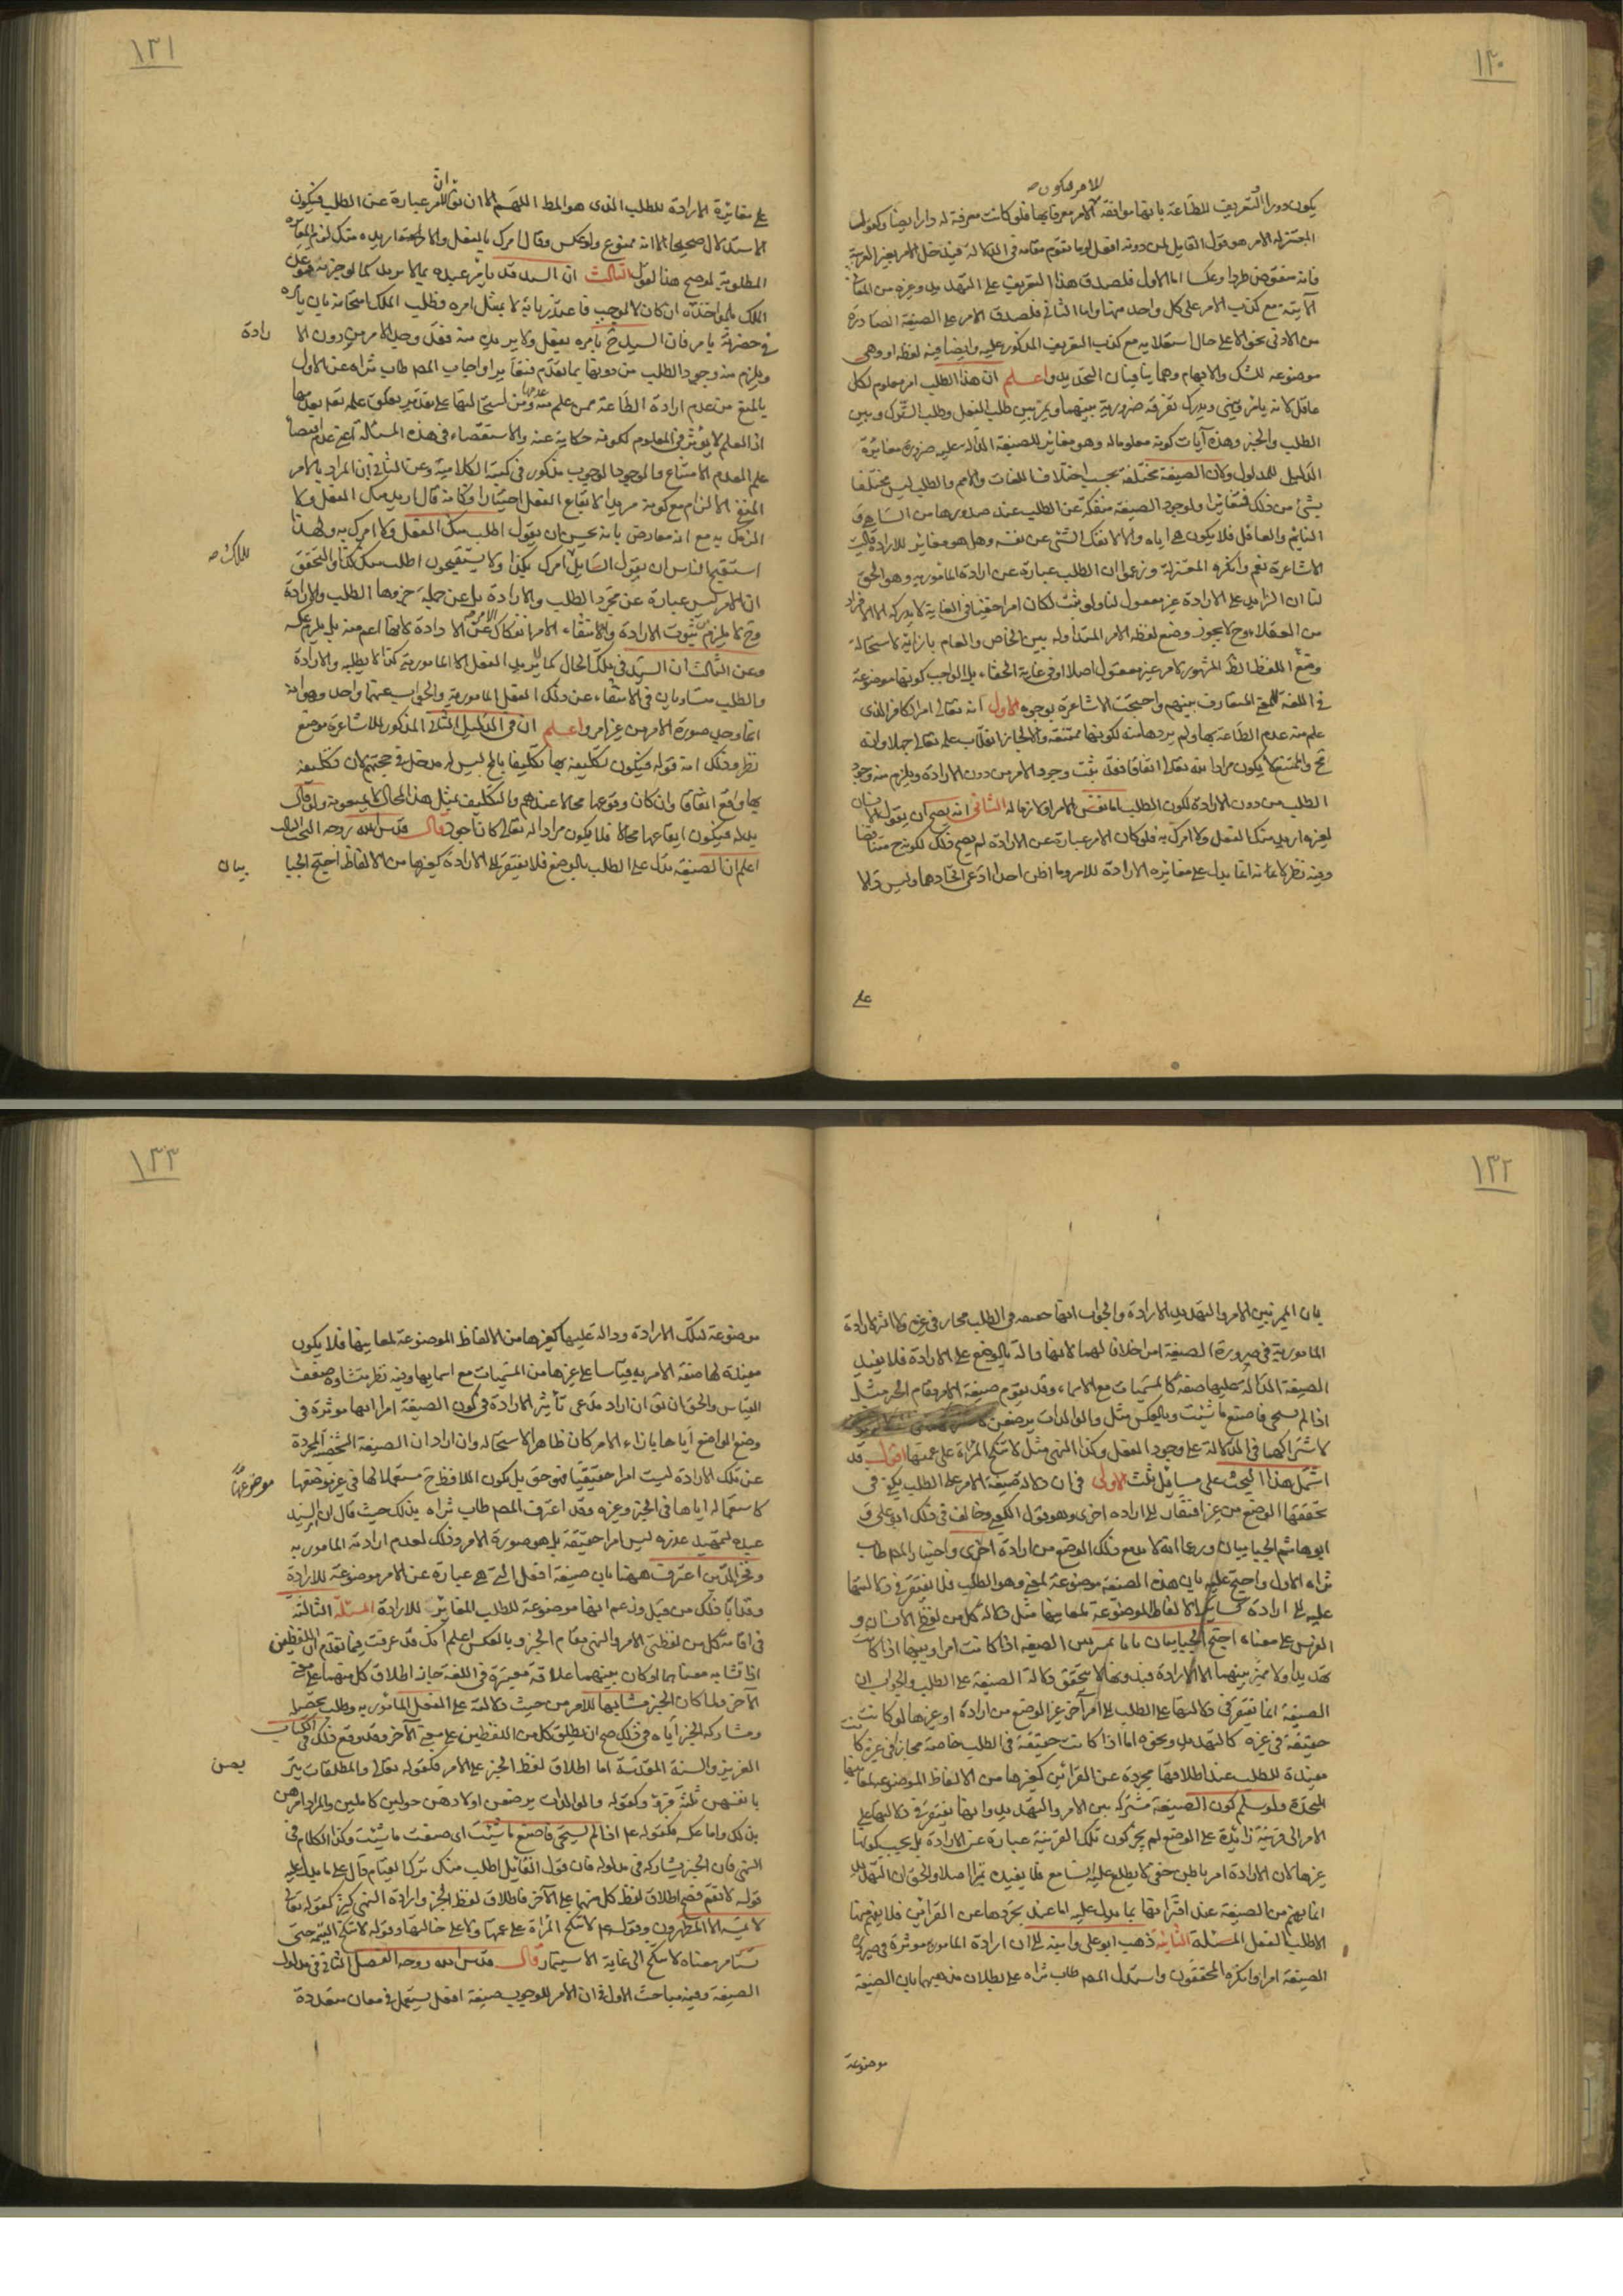 ١٣٠
للامر فيكون
يكون دورا التعريف للطاعة بانها موافقة الامر معرفا بها فلو كانت معرفة له دار ايضا وكقول
المعتزلة الامر هو قول القايل لمن دونه افعل او ما تقوم مقامه في الدلالة فيدخل الامر بغير العربية
فانه منقوض طردا وعكسا اما الاول فلصدق هذا التعريف على التهديد وغيره من المعاني
الآتية مع كذب الامر على كل واحد منها واما الثاني فلصدق الامر على الصيغة الصادرة
من الادنى نحو الاعلى حال استعلائه مع كذب التعريف المذكور عليه وايضا فيه لفظه او وهي
موضوعه للشك والابهام وهما ينافيان التحديد واعلم ان هذا الطلب امر معلوم لكل
عاقل لانه يامر وينهى ويدرك تفرقة ضرورية بينهما ويميز بين طلب الفعل وطلب الترك وبين
الطلب والخبر وهذه آيات كونه معلوما له وهو مغاير للصيغة الدالة عليه ضرورة مغايرة
الدليل للمدلول ولان الصيغة مختلفة بحسب اختلاف اللغات والامم والطلب ليس مختلفا
بشئ من ذلك فتغايرا ولوجود الصيغة منفكة عن الطلب عند صدورها من الساهي و
النائم والغافل فلا يكون هي اياه والا لانفك الشئ عن نفسه وهل هو مغاير للارادة قالت
الاشاعرة نعم وانكره المعتزلة وزعموا ان الطلب عبارة عن ارادة المامور به وهو الحق
لنا ان الزايد على الارادة غير معقول لنا ولو ثبت لكان امرا خفيا في الغاية لا يدركه الا الافراد
من العقلاء وح لا يجوز وضع لفظه الامر المتداوله بين الخاص والعام بازائه لاستحالة
وضع اللفظ الظ المشهور لامر غير معقول اصلا او في غاية الخفاء بل الواجب كونها موضوعة
في اللغة للمعنى المتعارف بينهم واحتجت الاشاعرة بوجوه الاول انه تعالى امر الكافر الذي
علم منه عدم الطاعة بها ولم يردها منه لكونها ممتنعة والا لجاز انقلاب علمه تعالى جهلا وانه
مح والممتنع لا يكون مرادا منه تعالى اتفاقا فقد ثبت وجود الامر من دون الارادة ويلزم منه وجود
الطلب من دون الارادة لكون الطلب اما نفس الامر او لازما له الثاني انه يصح ان يقول الانسان
لغيره اريد منك الفعل ولا امرك به فلو كان الامر عبارة عن الارادة لم يصح ذلك لكونه ح متناقضا
وفيه نظر لانه انما يدل على مغايرة الارادة للامر وما اظن احدا ادعى اتحادهما وليس دالا
على
١٣١
ان
على مغايرة الارادة للطلب الذي هو المط اللهم الا ان يق الامر عبارة عن الطلب فيكون
الاستدلال صحيحا الا انه ممنوع ولو عكس وقال امرك بالفعل ولا اريده منك لزم المغايرة
المطلوبة لو صح هذا القول الثالث ان السيد قد يامر عبده بما لا يريد كما لو
الملك بالمواخذة ان كان لا لموجب فاعتذر بانه لا يمتثل امره وطلب الملك امتحانه بان يامره
في حضرته بامر فان السيد ح يامره بفعل ولا يريد منه فقد وجد الامر من دون الا
رادة
ويلزم منه وجود الطلب من دونها بما تقدم فتغايرا واجاب المصـ طاب ثراه عن الاول
بالمنع من عدم ارادة الطاعة ممن علم منه عدمها
اذ العلم لا يؤثر في المعلوم لكونه حكاية عنه والاستقصاء في هذه المسئلة
علم العدم الامتناع والوجود الوجوب مذكور في كتبه الكلامية وعن الثاني ان المراد بالامر
المنفي الالزام مع كونه مريدا لايقاع الفعل اختيارا وكانه قال اريد منك الفعل ولا
الزمك به مع انه معارض بانه يحسن ان يقول اطلب منك الفعل ولا امرك به ولهذا
استقبح الناس ان يقول السايل امرك بكذا ولا يستقبحون اطلب منك كذا والتحقق
للملك
ان الامر ليس عبارة عن مجرد الطلب والارادة بل عن جملة جزوها الطلب والارادة
وح لا يلزم من ثبوت الارادة وانتفاء الامر انفكاك الامر عن الارادة لانها اعم منه بل يلزم عكسه
وعن الثالث ان السيد في تلك الحال كما لا يريد الفعل المامور به كذا لا يطلبه والارادة
والطلب متساويان في الانتفاء عن ذلك الفعل المامور به والجواب عنهما واحد وهو انه
انما وجد صورة الامر من غير امر واعلم ان في الدليل الثاني المذكور للاشاعرة موضع
نظر وذلك انه قوله فيكون تكليفه بها تكليفا بالمح ليس له مدخل في حجتهم لان تكليفه
بها واقع اتفاقا وان كان وقوعها محالا عندهم والتكليف بمثل هذا المحال لا يمنعونه ولو قال
بدله فيكون ايقاعها محالا فلا يكون مرادا له تعالى كان اجود قال قدس الله روحه البحث الثالث
اعلم ان الصيغة تدل على الطلب بالوضع فلا يفتقر الى الارادة كغيرها من الالفاظ احتج الجبا
بيان
١٣٢
بان المميز بين الامر والتهديد الارادة والجواب انها حقيقة في الطلب مجاز في غيره ولا اثر لارادة
المامور به في صيرورة الصيغة امرا خلافا لهما لانها دالة بالوضع على الارادة فلا يفيد
الصيغة الدالة عليها صفة كالمسميات مع الاسماء وقد يقوم صيغة الامر مقام الخبر مثل
اذا لم تستحي فاصنع ما شئت وبالعكس مثل والوالدات يرضعن
لاشتراكهما في الدلالة على وجود الفعل وكذا النهي مثل لا تنكح المراة على عمتها اقول قد
اشتمل هذا البحث على مسائل ثلث الاولى في ان دلالة صيغة الامر على الطلب يكفي في
تحققها الوضع من غير افتقار الى ارادة اخرى وهو قول الكعبي وخالف في ذلك ابو علي و
ابو هاشم الجبائيان وزعما انه لا بد مع ذلك الوضع من ارادة اخرى واختيار المصـ طاب
ثراه الاول واحتج عليه بان هذه الصيغة موضوعة لمعنى وهو الطلب فلا يفتقر في دلالتها
عليه الى ارادة كساير الالفاظ الموضوعة لمعانيها مثل دلالة كل من لفظي الانسان و
الفرس على معناه احتج الجبائيان بانا نميز بين الصيغة اذا كانت امرا وبينها اذا كانت
تهديدا ولا مميز بينهما الا الارادة فبدونها لا يتحقق دلالة الصيغة على الطلب والجواب ان
الصيغة انما تفتقر في دلالتها على الطلب الى امر آخر غير الوضع من ارادة او غيرها لو كانت
حقيقة في غيره كالتهديد ونحوه اما اذا كانت حقيقة في الطلب خاصة مجازا في غيره كانت
مفيدة للطلب عند اطلاقها مجردة عن القرائن كغيرها من الالفاظ الموضوعة لمعانيها
المتحدة ولو سلم كون الصيغة مشتركة بين الامر والتهديد وانها تفتقر في دلالتها على
الامر الى قرينة زائدة على الوضع لم يجز كون تلك القرينة عبارة عن الارادة بل يجب كونها
غيرها لان الارادة امر باطن خفي لا يطلع عليه السامع فلا يفيده تميزا اصلا والحق ان التهديد
انما يفهم من الصيغة عند اقترانها بما يدل عليه اما عند تجردها عن القرائن فلا يفهم منها
الا طلب الفعل المسئلة الثانية ذهب ابو علي وابنه الى ان ارادة المامور به موثرة في صيرورة
الصيغة امرا وانكره المحققون واستدل المصـ طاب ثراه على بطلان مذهبهما بان الصيغة
موضوعة
١٣٣
موضوعة لتلك الارادة ودالة عليها كغيرها من الالفاظ الموضوعة لمعانيها فلا يكون
مفيدة لها صفة الامرية قياسا على غيرها من المسميات مع اسمائها وفيه نظر منشاوه ضعف
القياس والحق ان يق ان اراد مدعي تأثير الارادة في كون الصيغة امرا انها موثرة في
وضع الواضع اياها بازاء الامر كان ظاهر الاستحالة وان اراد ان الصيغة الشخصية المجردة
عن تلك الارادة ليست امرا حقيقيا فهو حق بل يكون اللافظ ح مستعملا لها في غير موضوعها
موضوعها
كاستعماله اياها في الخبر وغيره وقد اعترف المصـ طاب ثراه بذلك حيث قال ان السيد
عبده لتمهيد عذره ليس امرا حقيقة بل هو صورة الامر وذلك لعدم ارادته المامور به
وفخر الدين اعترف ههنا بان صيغة افعل التي هي عبارة عن الامر موضوعة للارادة
وقد ابا ذلك من قبل وزعم انها موضوعة للطلب المغاير للارادة المسئلة الثالثة
في اقامة كل من لفظتي الامر والنهي مقام الخبر وبالعكس اعلم انك قد عرفت فيما تقدم ان اللفظين
اذا تشابه معناهما او كان بينهما علاقة معتبرة في اللغة جاز اطلاق كل منهما على معنى
الآخر ولما كان الخبر مشابها للامر من حيث دلالته على الفعل المامور به وطلب تحصيله
ومشاركه الخبر اياه في ذلك صح ان يطلق كل من اللفظين على معنى الآخر وقد وقع ذلك في الكتاب
العزيز والسنة المقدسة اما اطلاق لفظ الخبر على الامر فكقوله تعالى والمطلقات يتر
بصن
بانفسهن ثلثة قروء وكقوله والوالدات يرضعن اولادهن حولين كاملين والمراد امرهن
بذلك واما عكسه فكقوله عم اذا لم تستحي فاصنع ما شئت اي صنعت ما شئت وكذا الكلام في
النهي فان الخبر يشاركه في مدلوله فان قول القائل اطلب منك ترك القيام دال على ما يدل عليه
قوله لا تقم فصح اطلاق لفظ كل منهما على الآخر فاطلاق لفظ الخبر وارادة النهي كثير كقوله تعالى
لا يمسه الا المطهرون وقوله عم لا تنكح المراة على عمتها ولا على خالتها وقوله لا تنكح اليتيمة حتى
تستامر معناه لا تنكح الى غاية الاستيمار قال قدس الله روحه الفصل الثاني في مدلول
الصيغة وفيه مباحث الاول في ان الامر للوجوب صيغة افعل يستعمل في معان متعددة